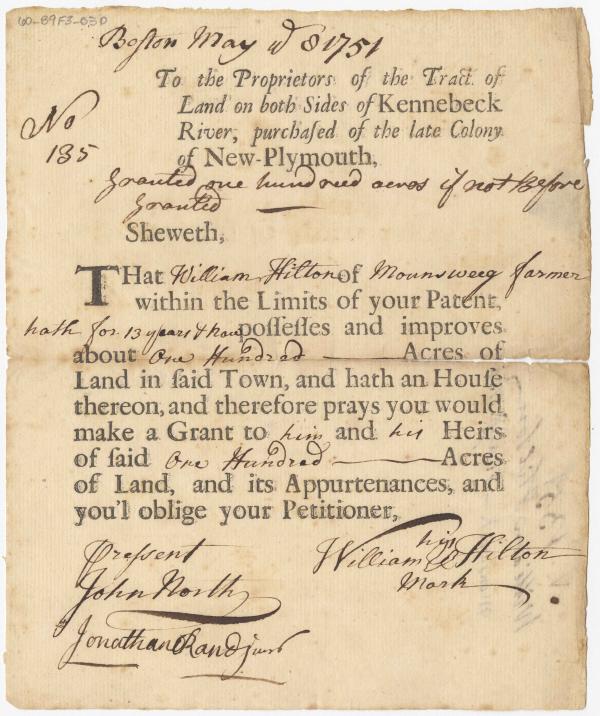 60-89F3-03D
Boston May ye 8 1751
To the Proprietors of the Tract of
Land on both Sides of Kennebeck
River, purchaſed of the late Colony
of New-Plymouth,
No
135
Granted one hundred acres if not Before
Granted
Sheweth,
THat William Hilton of Mounsweeg farmer
within the Limits of your Patent,
hath for 13 years & have poſſeſſes and improves
about One Hundred Acres of
Land in ſaid Town, and hath an Houſe
thereon, and therefore prays you would
make a Grant to him and his Heirs
of ſaid One Hundred Acres
of Land, and its Appurtenances, and
you'l oblige your Petitioner,
his
William Hilton
Mark
Pressent
John North
Jonathan Rand